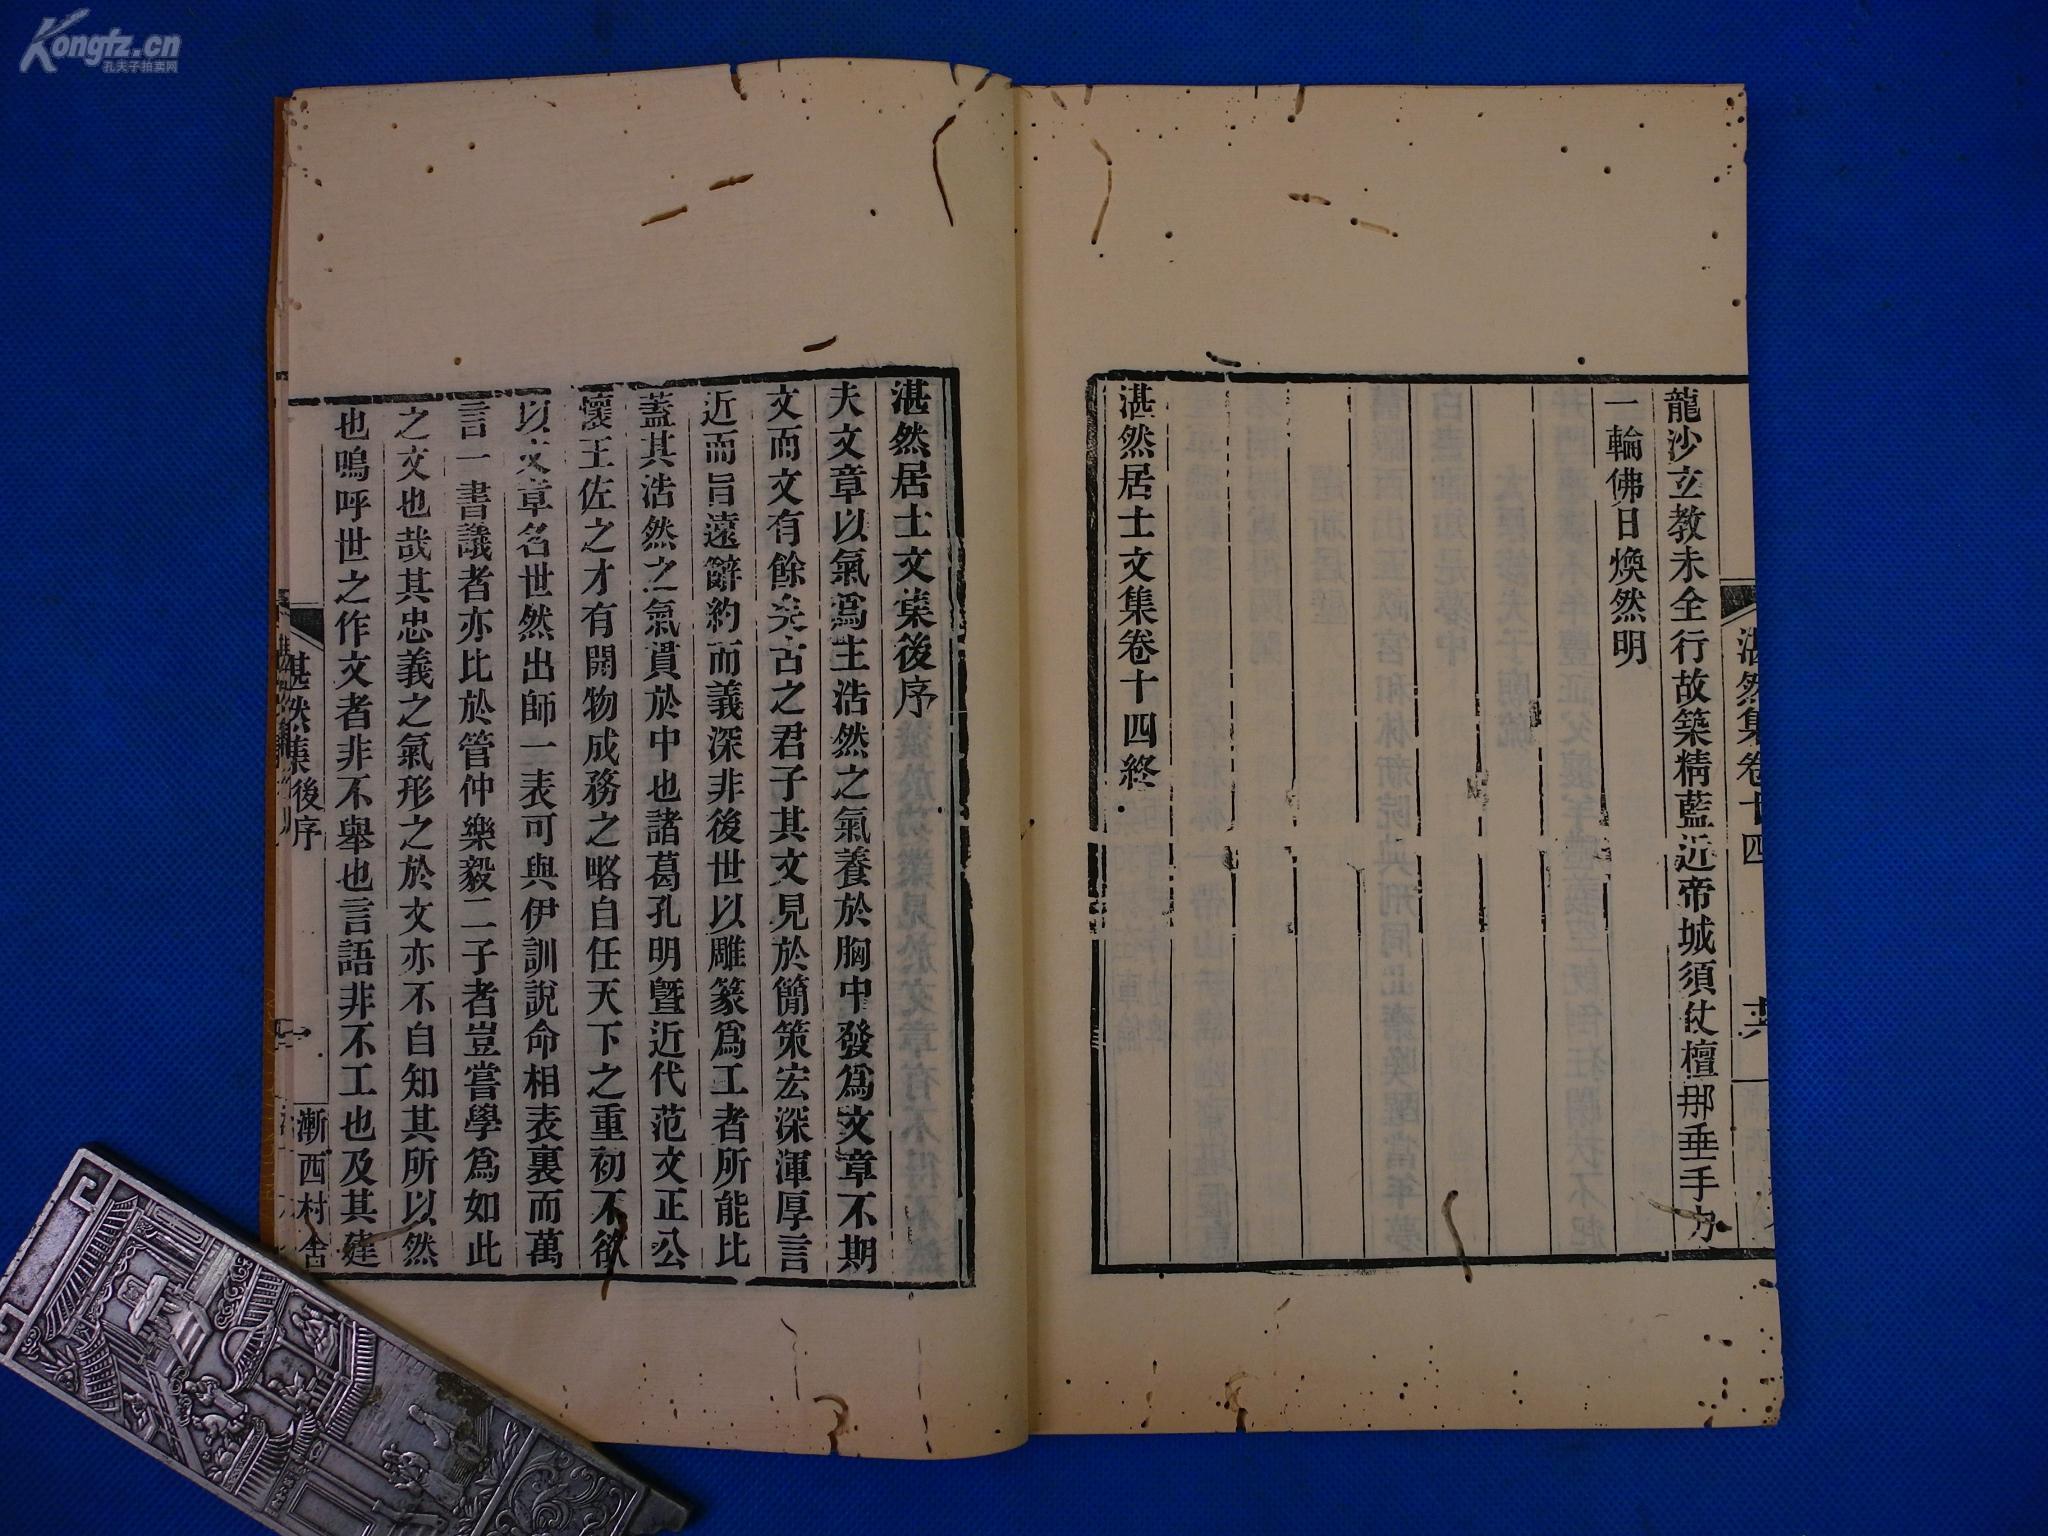 Kongfz.cn
孔夫子拍卖网
龍沙立教未全行故築精藍近帝城須仗檀那垂手力
一輪佛日煥然明
湛然居士文集卷十四終
湛然集卷十四
十六
湛然居士文集後序
夫文章以氣爲主浩然之氣養於胸中發爲文章不期
文而文有餘矣古之君子其文見於簡策宏深渾厚言
近而旨遠辭約而義深非後世以雕篆爲工者所能比
蓋其浩然之氣貫於中也諸葛孔明曁近代范文正公
懷王佐之才有開物成務之略自任天下之重初不欲
以文章名世然出師一表可與伊訓說命相表裏而萬
言一書議者亦比於管仲樂毅二子者豈嘗學爲如此
之文也哉其忠義之氣形之於文亦不自知其所以然
也嗚呼世之作文者非不舉也言語非不工也及其建
湛然集後序
一
漸西村舍